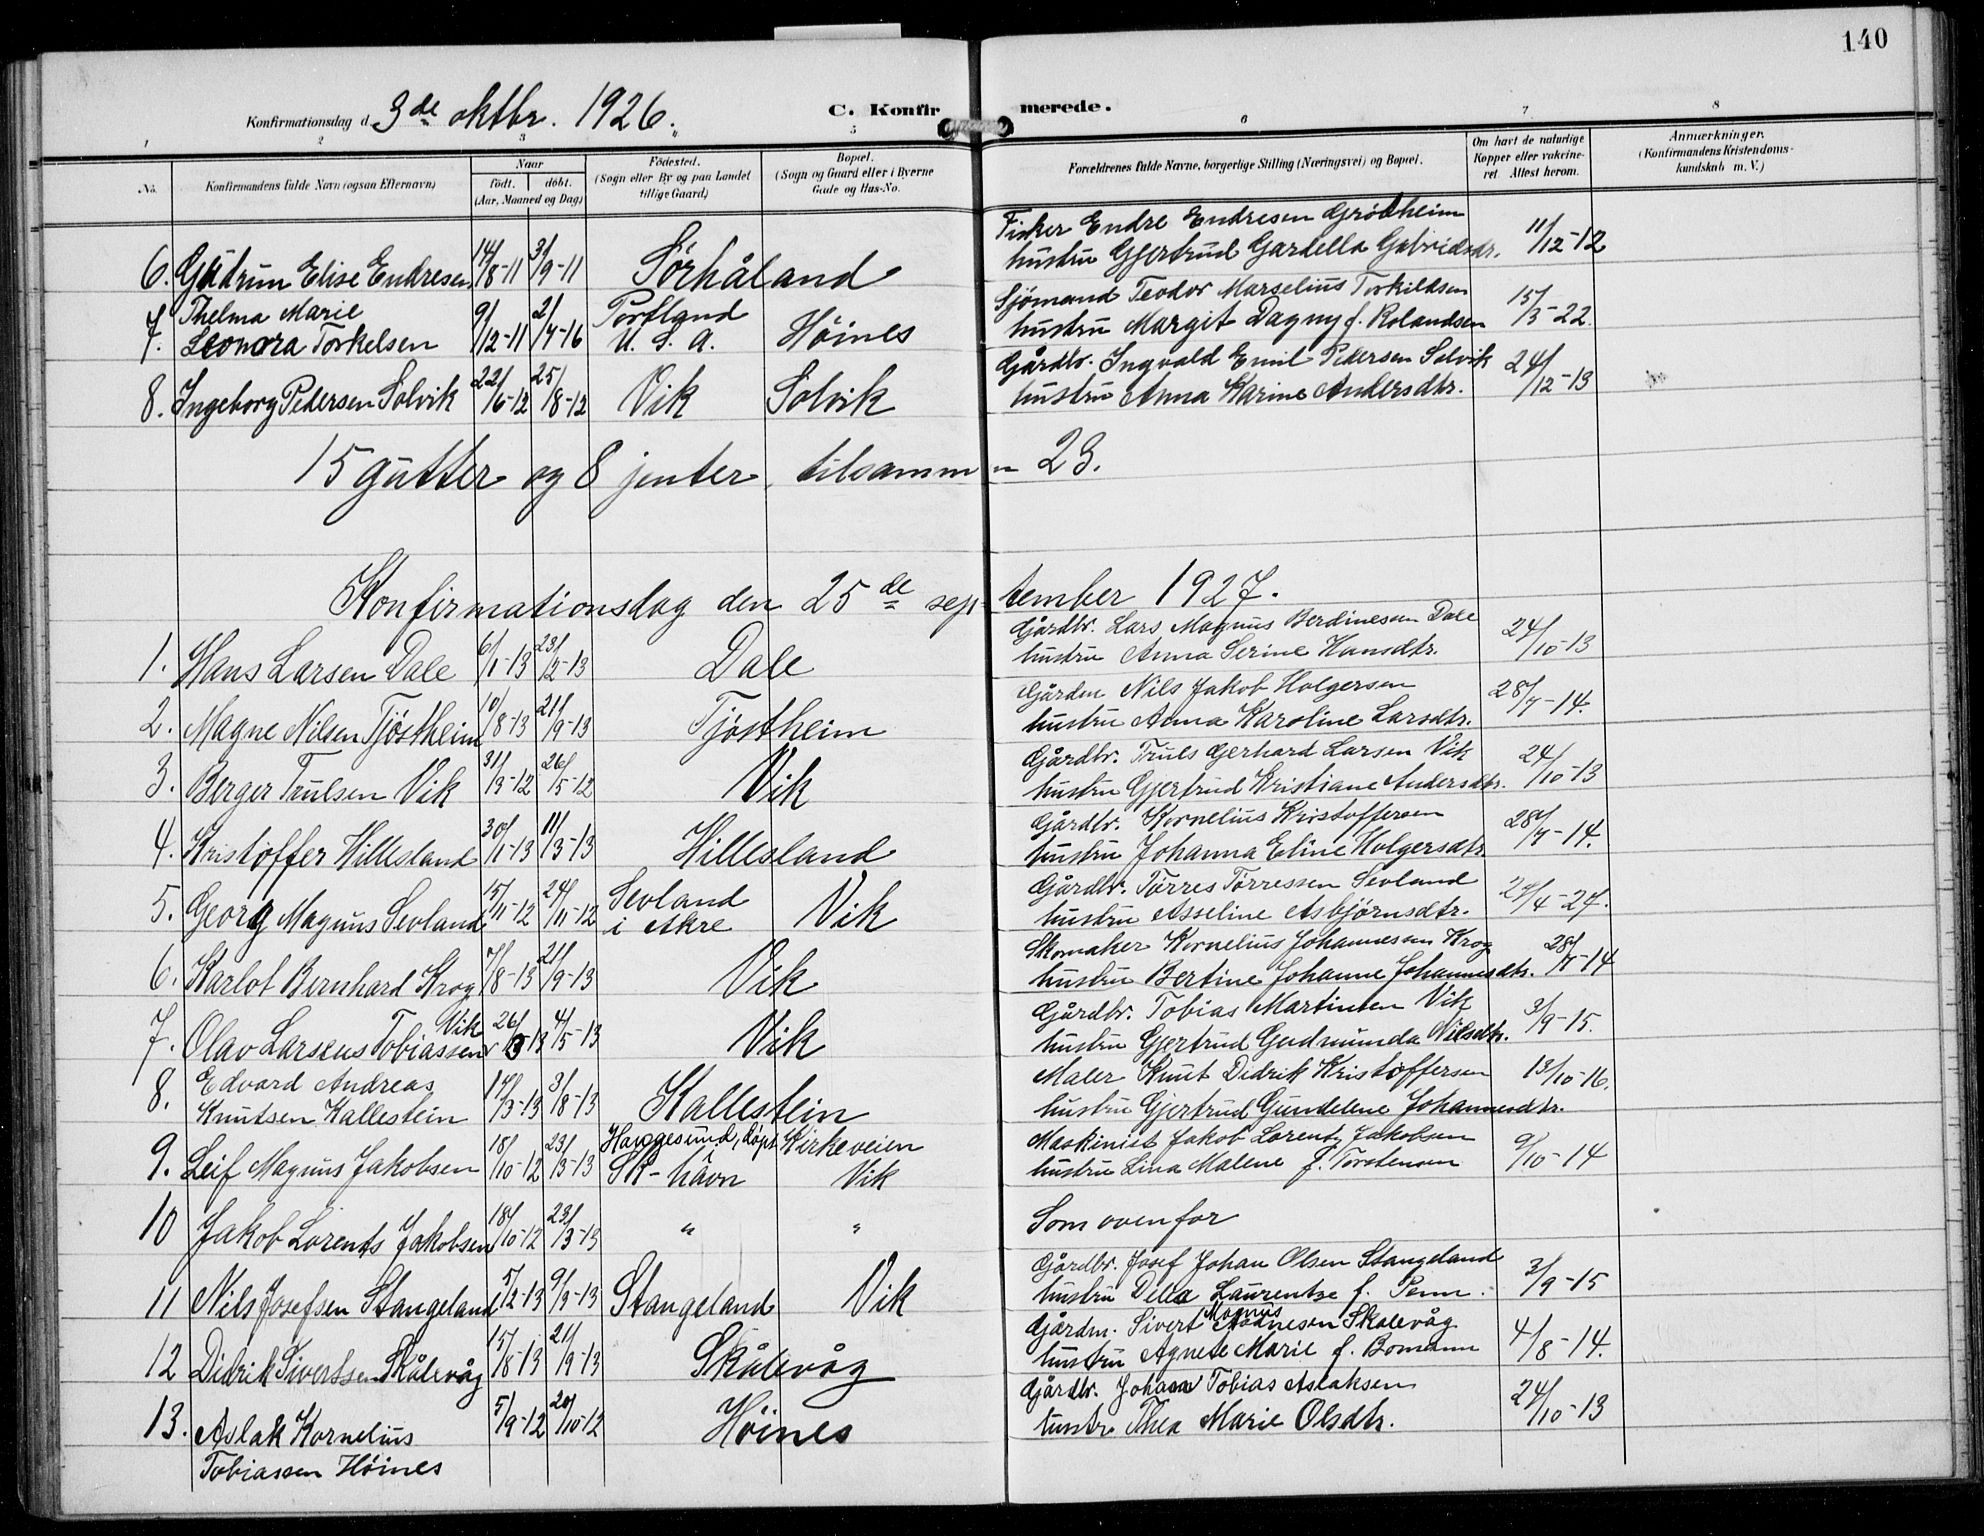 140
Konfirmationsdag d. 3de oktbr. 1926. C. Konfirmerede.
1 2 3 5 6 7 8
No. Konfirmandens fulde Navn (ogsaa Efternavn) Naar født. døbt. (Aar, Maaned og Dag) Fødested. (Sogn eller By og paa Landet tillige Gaard) Bopæl. (Sogn og Gaard eller i Byerne Gade og Hus-No. Forældrenes fulde Navne, borgerlige Stilling (Næringsvei) og Bopæl. Om havt de naturlige Kopper eller vakcineret. Attest herom. Anmærkninger. (Konfirmandens Kristendomskundskab m. V.)
Fisker Endre Endresen Grödheim
6. Gudrun Elise Endresen 14/8-11 3/9-11 Sørhåland hustru Gjertrud Gardella Gabrielsdtr. 11/12-12
Thelma Marie 9/12-11 2/7-16 Portland Sjömand Teodor Marselius Torkildsen 15/3-22
7. Leonora Torkelsen U. S. A. Höines hustru Margit Dagny f. Rolandsen
Gårdbr. Ingvald Emil Pedersen Solvik
8. Ingeborg Pedersen Solvik 22/6-12 25/8-12 Vik Solvik hustru Anna Karine Andersdtr. 24/12-13
15 gutter og 8 jenter, tilsammen 23.
Konfirmationsdag den 25de september 1927.
Gårdbr. Lars Magnus Berdinesen Dale
1. Hans Larsen Dale 6/1-13 23/2-13 Dale hustru Anna Serine Hansdtr. 24/10-13
Gårdm Nils Jakob Holgersen
2. Magne Nilsen Tjøstheim 10/8-13 21/9-13 Tjøstheim hustru Anna Karoline Larsdtr. 28/7-14.
Gårdbr. Truls Gerhard Larsen Vik
3. Berger Trulsen Vik 31/3-12 26/5-12 Vik hustru Gjertrud Kristiane Andersdtr. 24/10-13
Gårdbr. Kornelius Kristoffersen
4. Kristoffer Hillesland 30/1-13 11/3-13 Hillesland hustru Johanna Eline Holgersdtr. 28/7-14.
Sevland Gårdbr. Tørres Tørressen Sevland
5. Georg Magnus Sevland 15/11-12 24/11-12 i Akre Vik hustru Asseline Asbjörnsdtr. /4-27.
Skomaker Kornelius Johannesen Krog
6. Karlot Bernhard Krog 7/8-13 21/9-13 Vik hustru Bertine Johanne Johannesdtr. 28/7-14
Vik Gårdbr. Tobias Martinsen Vik
7. Olav Larsens Tobiassen 26/3-13 4/5-13 Vik hustru Gjertrud Gudmunda Nilsdtr. 3/9-15.
Edvard Andreas Maler Knut Didrik Kristoffersen 13/10-16.
8. Knutsen Kallestein /3-13 3/8-13 Kallestein hustru Gjertrud Gundelene Johannesdtr.
Haugesund, døpt i Kirkeveien Maskinist Jakob Lorentz Jakobsen
9. Leif Magnus Jakobsen 18/10-12 23/3-13 Sk-havn Vik hustru Lina Malene f. Torstensen 9/10-14
10 Jakob Lorents Jakobsen 18/10-12 23/3-13 " " Som ovenfor
Gårdbr. Josef Johan Olsen Stangeland
11 Nils Josefsen Stangeland 5/2-13 9/3-13 Stangeland Vik hustru Della Laurentse f. Penn. 3/9-15
Magnus
Gårdm. Sivert Aadnesen Skålevåg
12 Didrik Sivertsen Skålevåg 15/8-13 21/9-13 Skålevåg hustru Agnete Marie f. Bomann 4/8-14.
Gårdbr. Johan Tobias Aslaksen
13. Aslak Kornelius 5/9-12 20/10-12 Höines hustr. Thea Marie Olsdtr. 24/10-13
Tobiassen Höines